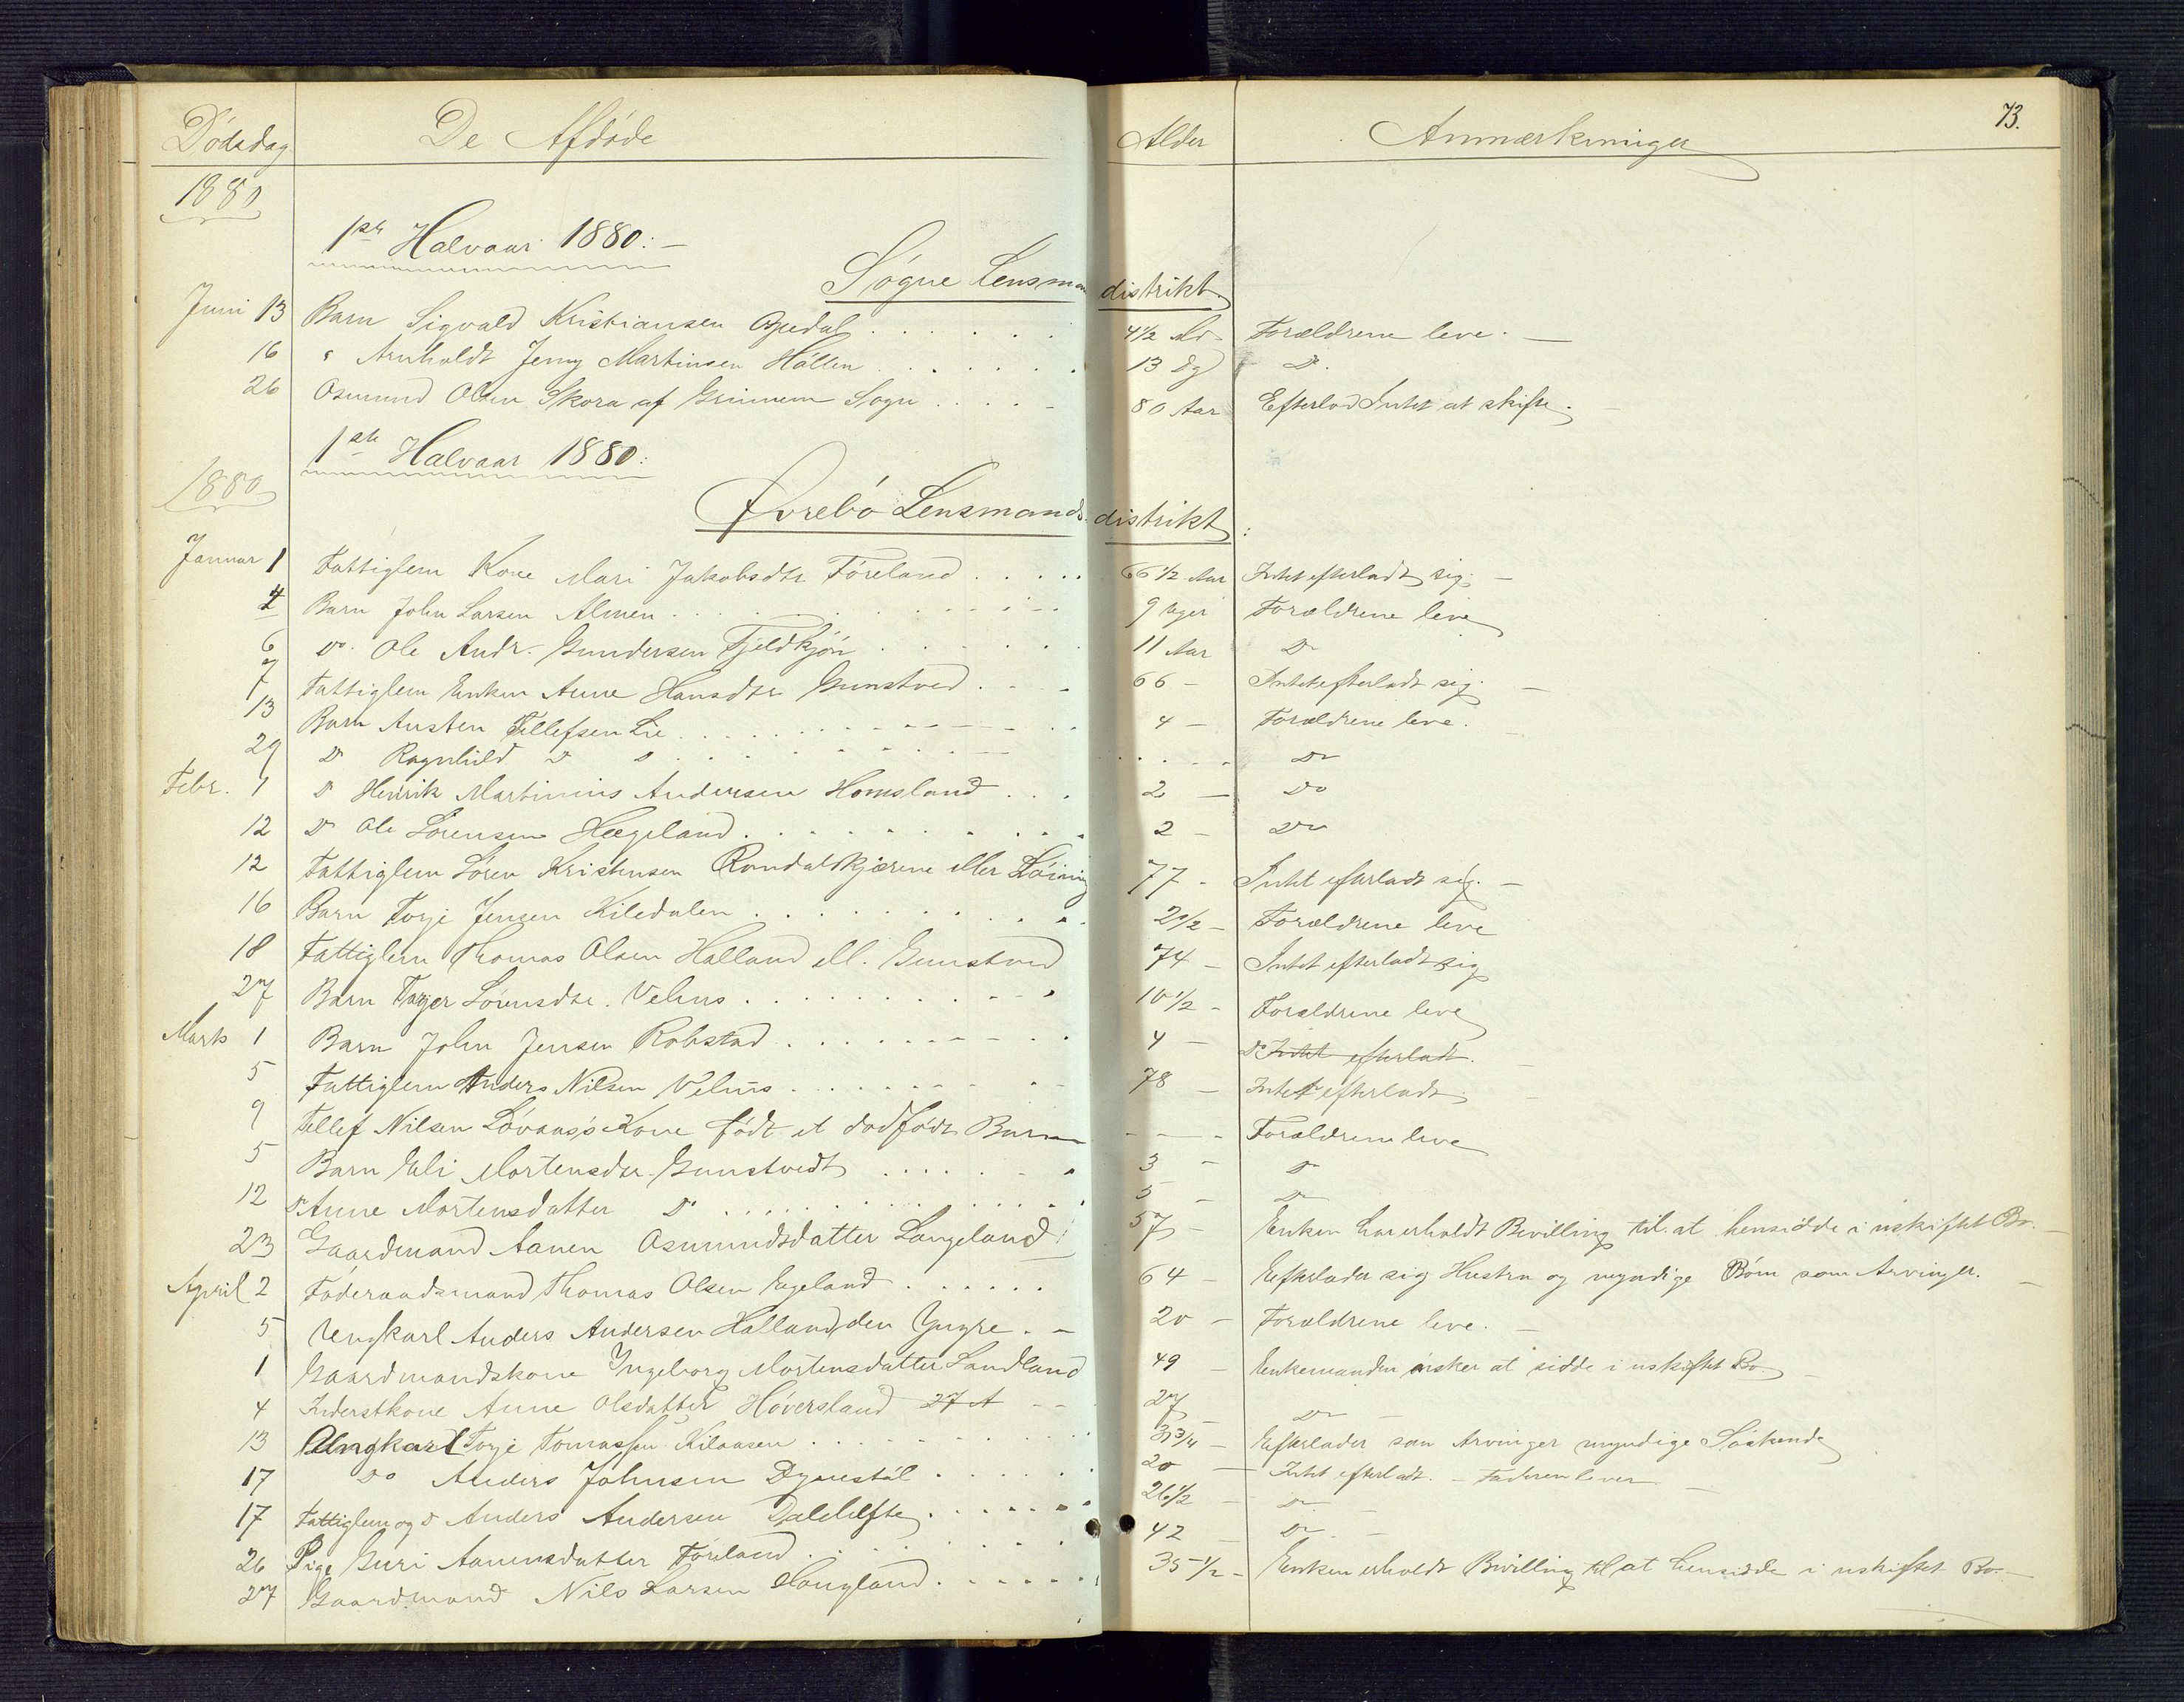 73.
Dødsdag De Afdøde Alder Anmærkninger
1880
1ste Halvaar 1880:
Søgne Lensmandistrikt
Juni 13 Barn Sigvald Kristiansen 4 1/2 Forældrene leve.
16 " Arnholdt Jenny Martinsen Hóllen 13 Dg Do.
26 Osmund Olsen Skora af Grinnem Sogn 80 Aar Efterlod Intet at skifte.
1ste Halvaar 1880:
1880
Øvrebø Lensmandsdistrikt:
Januar 1 Fattiglem Kone Mari Jakobsdtr Føreland 66 1/2 Aar Intet efterladt sig.
4 Barn John Larsen Almen 9 Uger Forældrene leve
6 Do. Ole Andr. Gundersen Fjeldkjøn 11 Aar Do
7 Fattiglem Enken Anne Hansdtr Gunstved 66 - Intet efterladt sig.
13 Barn Austen Tellefsen Lie 4 - Forældrene leve.
29 Do Ragnhild Do Do Do
Febr. 1 Do Henrik Martinius Andersen Homsland 2 - Do
12 Do Ole Sørensen Hægeland 2 - Do
12 Fattiglem Søren Kristensen eller 77 - Intet efterladt sig.
16 Barn Torje Jensen Kiledalen 2 1/2 - Forældrene leve
18 Fattiglem Thomas Olsen Halland ell. Gunstved 74 - Intet efterladt sig
27 Barn Sørensdtr. Vehus 10 1/2 - Forældrene leve
Marts 1 Barn John Jensen Robstad 4 - Do Intet efterladt.
5 Fattiglem Anders Nilsen Vehus 78 - Intet efterladt
9 Tellef Nilsen Løvaas's Kone født et dødfødt Barn - Forældrene leve
5 Barn Eli Mortensdtr. Gunstvedt 3 - Do
12 Do Anne Mortensdatter Do 5 - Do
23 Gaardmand Aanen Osmundsdatter Langeland 57 - Enken har erholdt Bevilling til at hensidde i uskiftet Bo.
April 2 Føderaadsmand Thomas Olsen Egeland 64 - Efterlader sig Hustru og myndige Børn som Arvinger.
5 Ungkarl Anders Andersen Halland, den Yngre. 20 - Forældrene leve.
1 Gaardmandskone Ingeborg Mortensdatter Sandland 49 - Enkemanden ønsker at sidde i uskiftet Bo
4 Inderstkone Anne Olsdatter Høversland 27 A 27 - Do
13 Ungkarl Torje Tomassen Kilaasen 31 3/4 - Efterlader som Arvinger myndige Søskende
17 Do Anders Johnsen Dynestøl 20 - Intet efterladt. - Faderen lever
17 Fattiglem og Do Anders Andersen 26 1/2 - Do
26 Pige Guri Aanensdatter Føreland 42 Do.
27 Gaardmand Nils Larsen Haugland 35 1/2 - Enken erholdt Bevilling til at hensidde i uskiftet Bo.